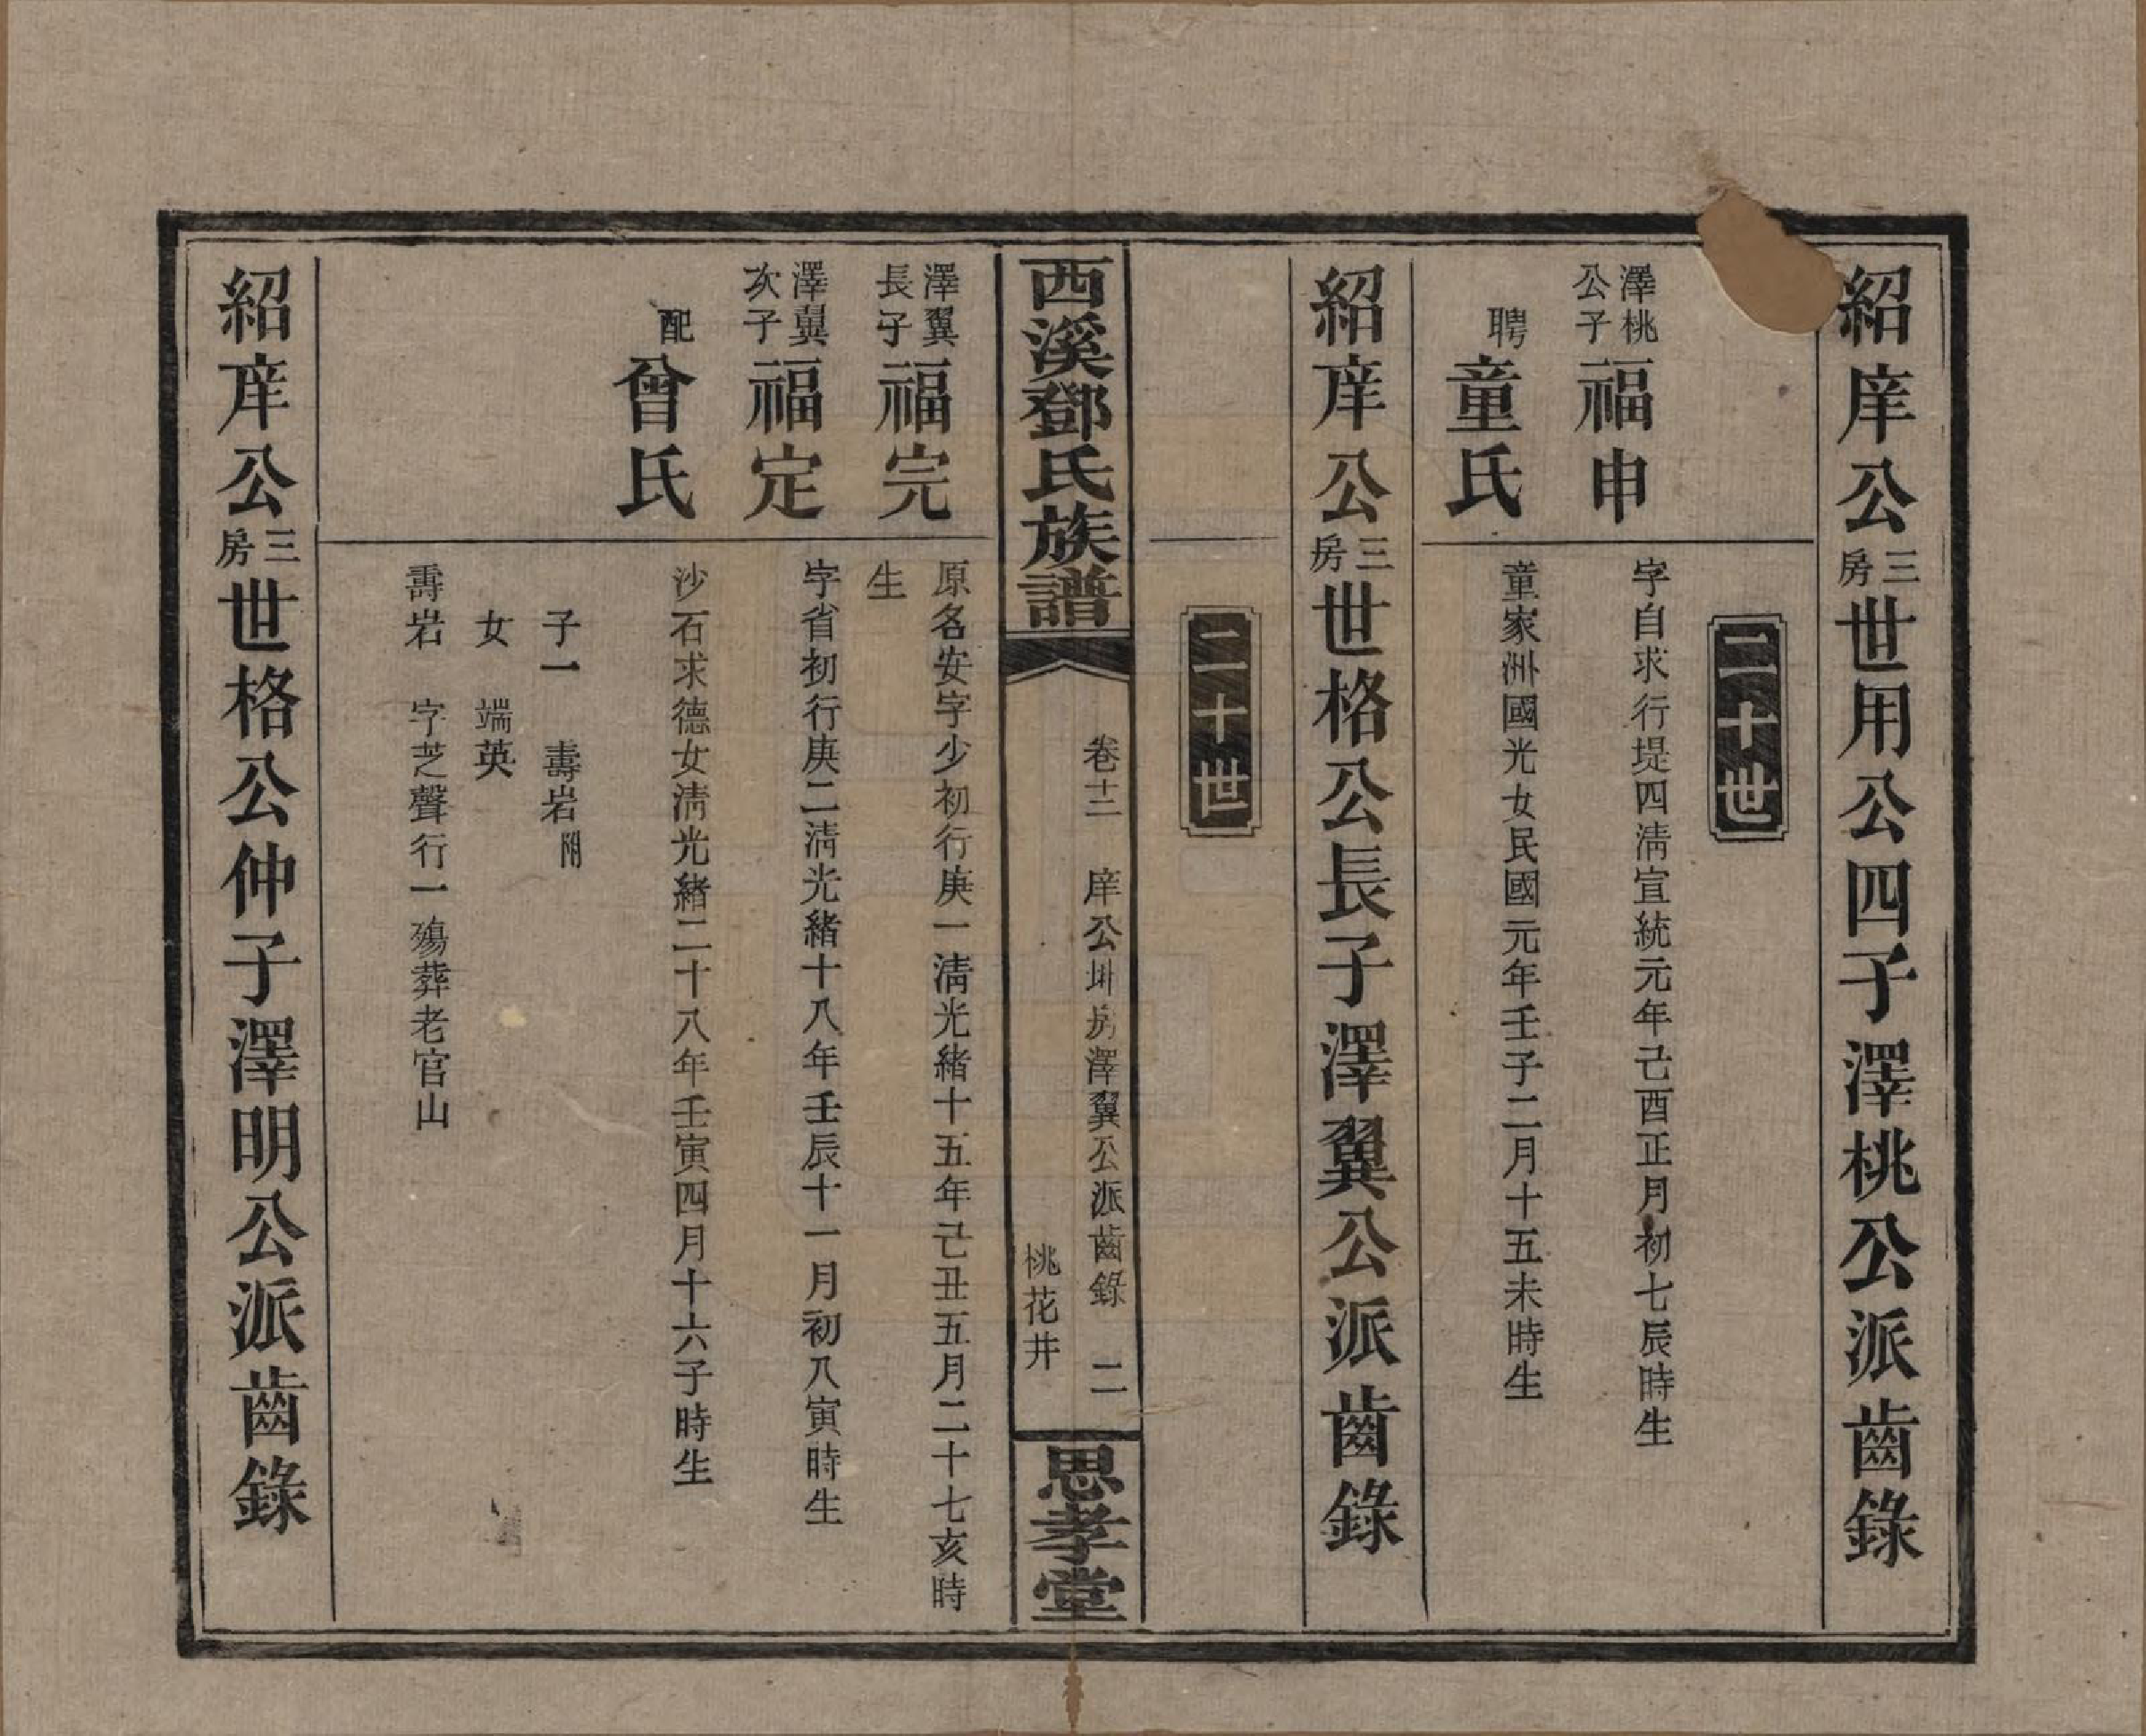 紹庠公三房世用公四子澤桃公派齒錄
二十世
澤桃公子福申
字自求行堤四淸宣統元年己酉正月初七辰時生
聘童氏
童家洲國光女民國元年壬子二月十五未時生
紹庠公三房世格公長子澤翼公派齒錄
二十世
西溪鄧氏族譜
卷十二 庠公圳房澤翼公派齒錄 二
桃花井
思孝堂
澤翼長子福完
原名安字少初行庚一淸光緒十五年己丑五月二十七亥時
生
澤翼次子福定
字省初行庚二淸光緒十八年壬辰十一月初八寅時生
配曾氏
沙石求德女淸光緒二十八年壬寅四月十六子時生
子一 壽岩附
女 端英
壽岩 字芝聲行一殤葬老官山
紹庠公三房世格公仲子澤明公派齒錄